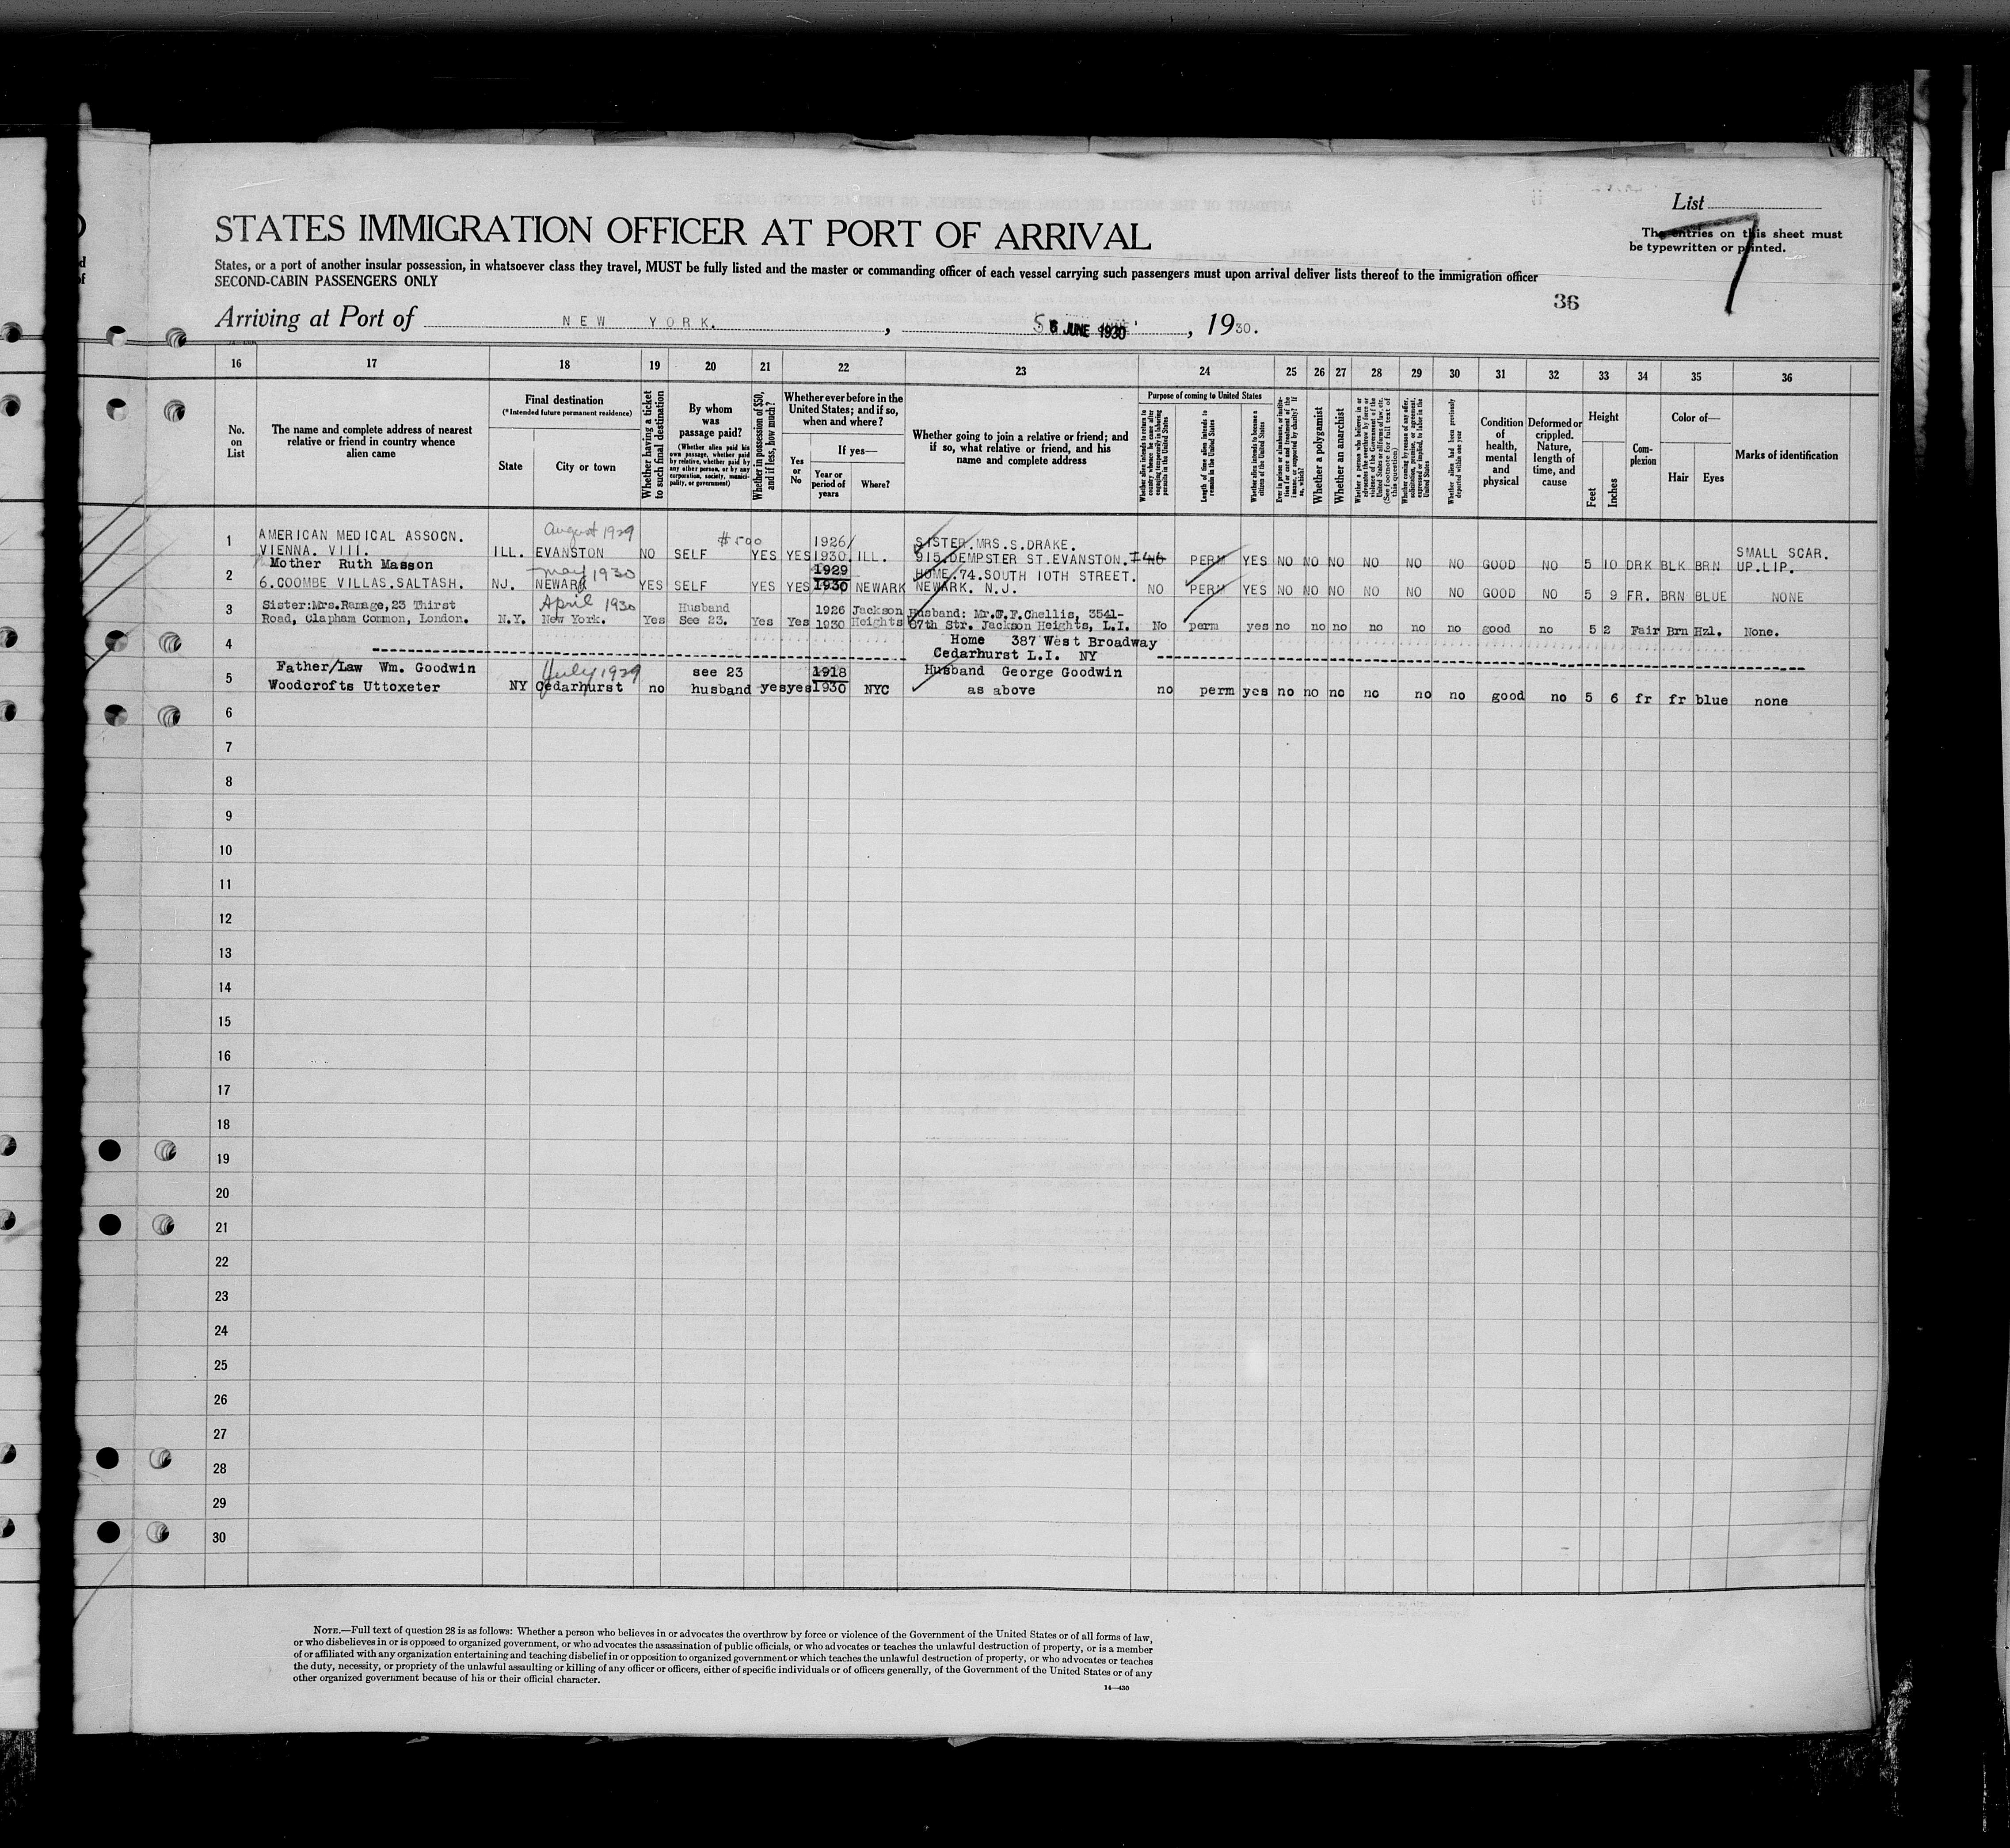 List
7
The entries on this sheet must
be typewritten or printed.
STATES IMMIGRATION OFFICER AT PORT OF ARRIVAL
States, or a port of another insular possession, in whatsoever class they travel, MUST be fully listed and the master or commanding officer of each vessel carrying such passengers must upon arrival deliver lists thereof to the immigration officer
SECOND-CABIN PASSENGERS ONLY
36
Arriving at Port of NEW YORK. , 6 JUNE 1930 , 1930.
16 17 18 19 20 21 22 23 24 25 26 27 28 29 30 31 32 33 34 35 36
No.
on
List
The name and complete address of nearest
relative or friend in country whence
alien came
Final destination
(*Intended future permanent residence)
State
City or town
Whether having a ticket
to such final destination
By whom
was
passage paid?
(Whether alien paid his
own passage, whether paid
by relative, whether paid by
any other person, or by any
corporation, society, munici-
pality, or government)
Whether in possession of $50,
and if less, how much?
Whether ever before in the
United States; and if so,
when and where?
Yes
or
No
If yes—
Year or
period of
years
Where?
Whether going to join a relative or friend; and
if so, what relative or friend, and his
name and complete address
Purpose of coming to United States
Whether alien intends to return to
country whence he came after
engaging temporarily in laboring
pursuits in the United States
Length of time alien intends to
remain in the United States
Whether alien intends to become a
citizen of the United States
Ever in prison or almshouse, or institu-
tion for care and treatment of the
insane, or supported by charity? If
so, which?
Whether a polygamist
Whether an anarchist
Whether a person who believes in or
advocates the overthrow by force or
violence of the Government of the
United States or all forms of law, etc.
(See footnote for full text of
this question)
Whether coming by reason of any offer,
solicitation, promise, or agreement,
expressed or implied, to labor in the
United States
Whether alien had been previously
deported within one year
Condition
of
health,
mental
and
physical
Deformed or
crippled.
Nature,
length of
time, and
cause
Height
Feet
Inches
Com-
plexion
Color of—
Hair
Eyes
Marks of identification
August 1929
$500
1 AMERICAN MEDICAL ASSOCN. 1926/ SISTER.MRS.S.DRAKE. SMALL SCAR.
VIENNA. VIII. ILL. EVANSTON NO SELF YES YES 1930. ILL. 915.DEMPSTER ST.EVANSTON. NO PERM YES NO NO NO NO NO NO GOOD NO 5 10 DRK BLK BRN UP.LIP.
2 Mother Ruth Masson May 1930 1929 HOME.74.SOUTH 10TH STREET.
6.COOMBE VILLAS.SALTASH. NJ. NEWARK YES SELF YES YES 1930 NEWARK NEWARK. N.J. NO PERM YES NO NO NO NO NO NO GOOD NO 5 9 FR. BRN BLUE NONE
3 Sister:Mrs.Ramage,23 Thirst April 1930 Husband 1926 Jackson Husband: Mr.F.Chellis, 3541-
Road, Clapham Common, London. N.Y. New York. Yes See 23. Yes Yes 1930 Heights 67th Str. Jackson Heights, L.I. No perm yes no no no no no no good no 5 2 Fair Brn Hzl. None.
4 Home 387 West Broadway
Cedarhurst L.I. NY
5 Father/Law Wm. Goodwin July 1929 see 23 1918 Husband George Goodwin
Woodcrofts Uttoxeter NY Cedarhurst no husband yes yes 1930 NYC as above no perm yes no no no no no no good no 5 6 fr fr blue none
6
7
8
9
10
11
12
13
14
15
16
17
18
19
20
21
22
23
24
25
26
27
28
29
30
NOTE.—Full text of question 28 is as follows: Whether a person who believes in or advocates the overthrow by force or violence of the Government of the United States or of all forms of law,
or who disbelieves in or is opposed to organized government, or who advocates the assassination of public officials, or who advocates or teaches the unlawful destruction of property, or is a member
of or affiliated with any organization entertaining and teaching disbelief in or opposition to organized government or which teaches the unlawful destruction of property, or who advocates or teaches
the duty, necessity, or propriety of the unlawful assaulting or killing of any officer or officers, either of specific individuals or of officers generally, of the Government of the United States or of any
other organized government because of his or their official character.
14—430